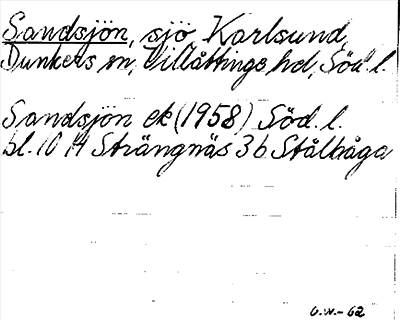 Sandsjön, sjö, Karlsund,
Dunkers sn, Villåttinge hd, Söd. l.
Sandsjön ek (1958) Söd. l.
bl. 10 14 Strängnäs 3 b Stålbåga
G.W.-62